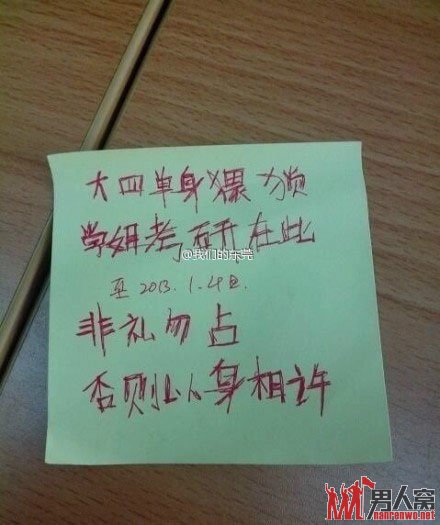 大四单身猥琐
学姐考研在此
@我们的东莞
至 2013.1.4日.
非礼勿占
否则以身相许
男人窝
nanrenwo.net